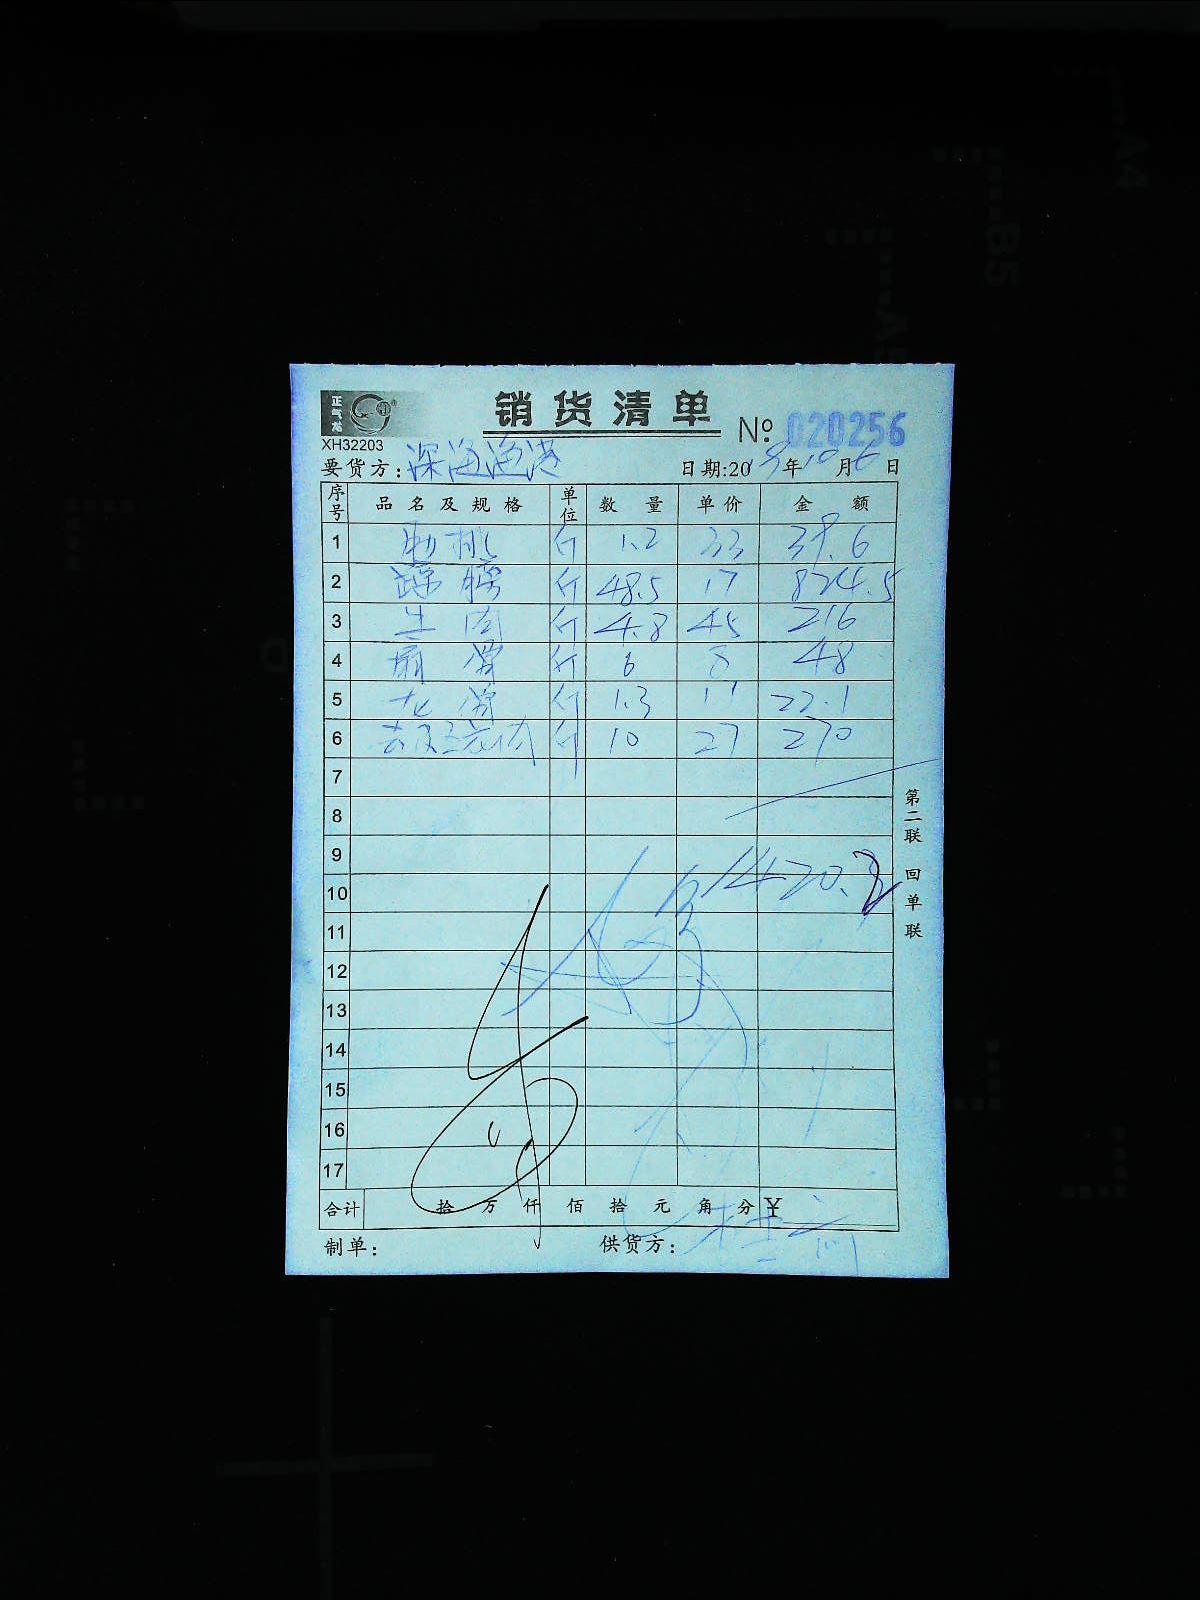 正气龙
销货清单
№ 020256
XH32203
要货方：深海渔港 日期:2019年10月6日
序号 品名及规格 单位 数量 单价 金额
1 斤 1.2 33 39.6
2 斤 48.5 17 824.5
3 牛肉 斤 4.8 45 216
4 扇骨 斤 6 8 48
5 龙骨 斤 1.3 17 22.1
6 去皮五花肉 斤 10 27 270
7
8
9
1420.2
10
11
12
13
14
15
16
17
合计 拾万仟佰拾元角分 ¥
制单： 供货方：
第二联 回单联